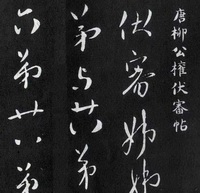 唐柳公權伏審帖
伏審姊姊
弟与廿弟
六弟廿八弟